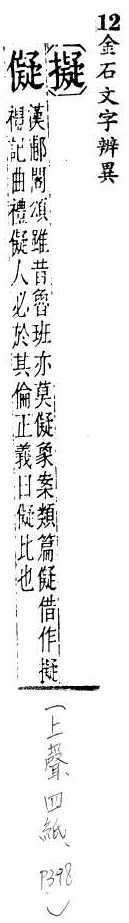 12金石文字辨異
擬
儗
漢郙閣頌雖昔魯班亦莫儗象案類篇儗借作擬
禮記曲禮儗人必於其倫正義曰儗比也
(上聲、四紙、P398)